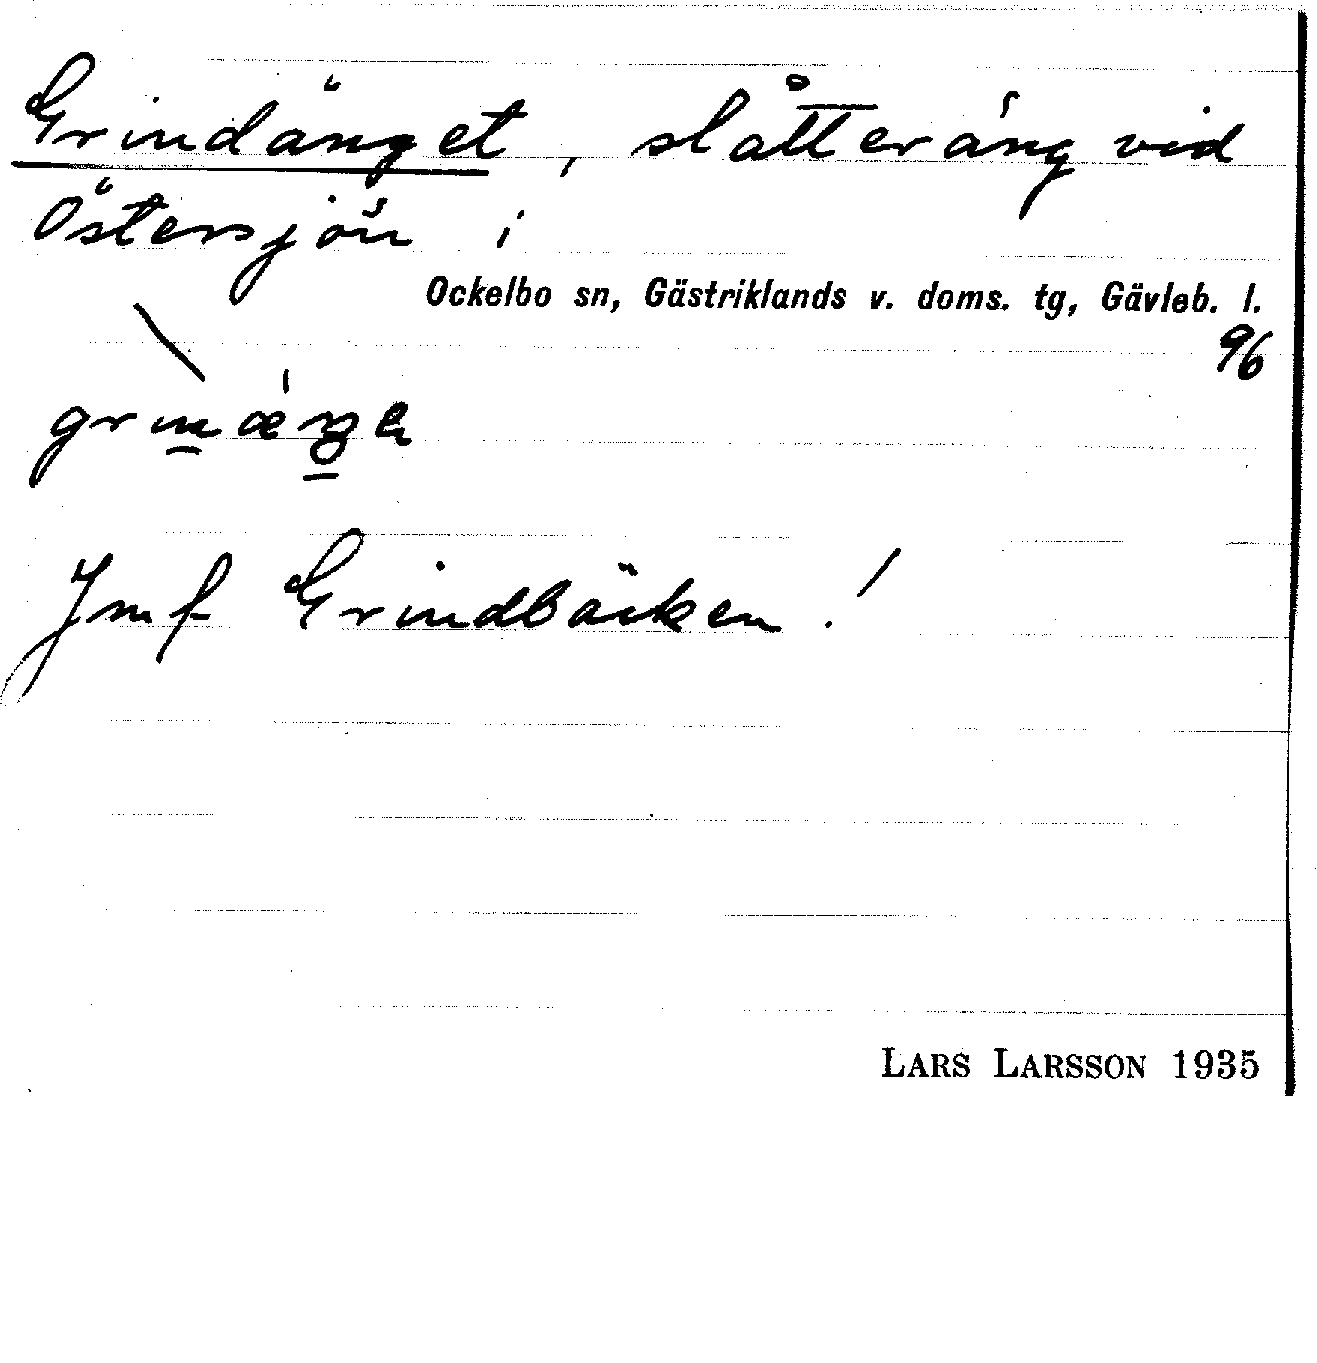 Grindänget, slåtteräng vid
Östersjön i
Ockelbo sn, Gästriklands v. doms. tg, Gävleb. l.
96
Jmf Grindbäcken!
LARS LARSSON 1935